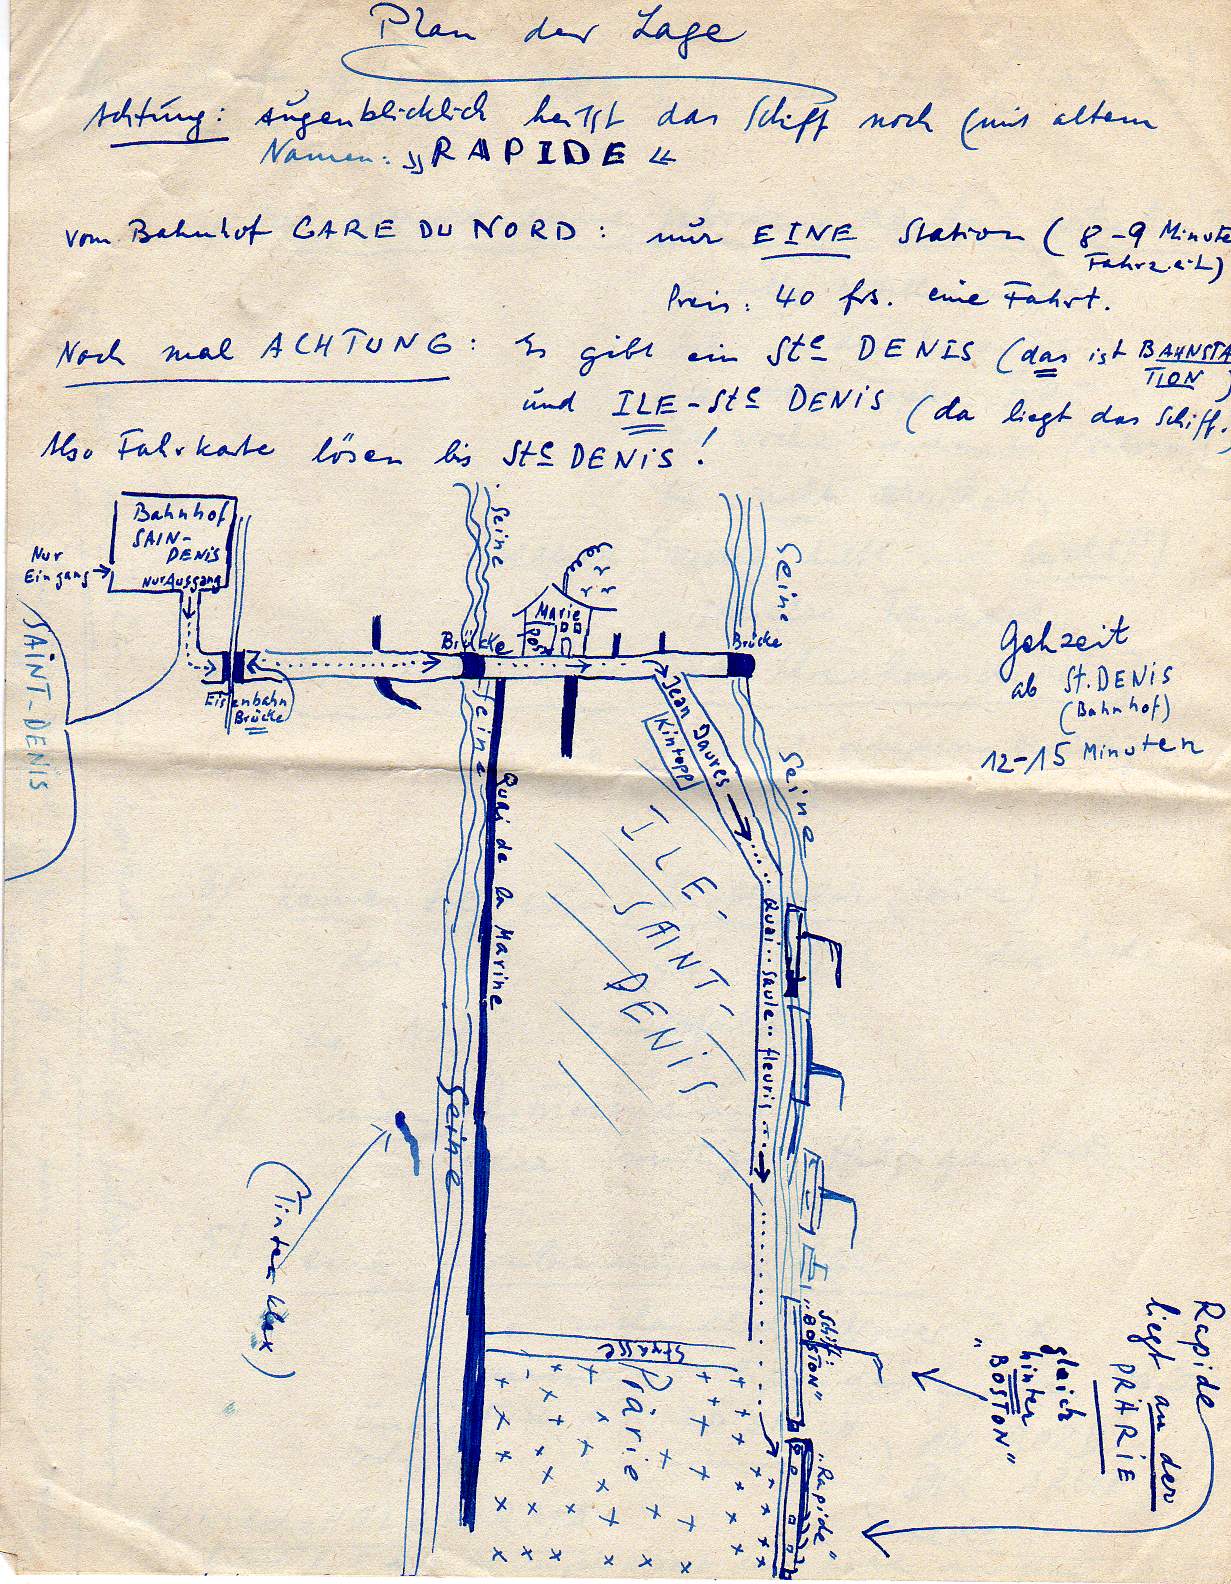 Plan der Lage
Achtung: Augenblicklich heisst das Schiff noch (mit altem
Namen: „RAPIDE“
vom Bahnhof GARE DU NORD: nur EINE Station (8-9 Minuten
Fahrzeit)
Preis: 40 frs. eine Fahrt.
Noch mal ACHTUNG: Es gibt ein Ste DENIS (das ist BAHNSTA
TION)
und ILE-Ste DENIS (da liegt das Schiff.)
Also Fahrkarte lösen bis Ste DENIS!
Bahnhof
SAIN-
DENIS
Nur Ausgang
Nur
Eingang
SAINT-DENIS
Eisenbahn
Brücke
Seine
Brücke
Marie
Post
Seine
Brücke
Gehzeit
ab St. DENIS
(Bahnhof)
12-15 Minuten
Seine
Quai de la Marine
Jean Jaures
Kintopp
Seine
ILE-
SAINT-
DENIS
Quai saule fleuris
Seine
(Tintenklex)
Strasse
Prärie
Schiff:
"BOSTON"
"Rapide"
gleich
hinter
"BOSTON"
Rapide
liegt an der
PRÄRIE